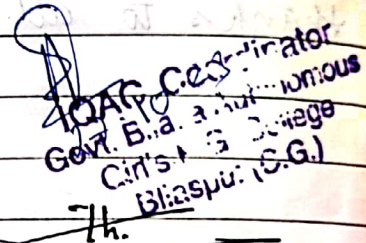 IQAC, Coordinator
Govt. Autonomous
Girl's P.G. College
Bilaspur (C.G.)
Th.